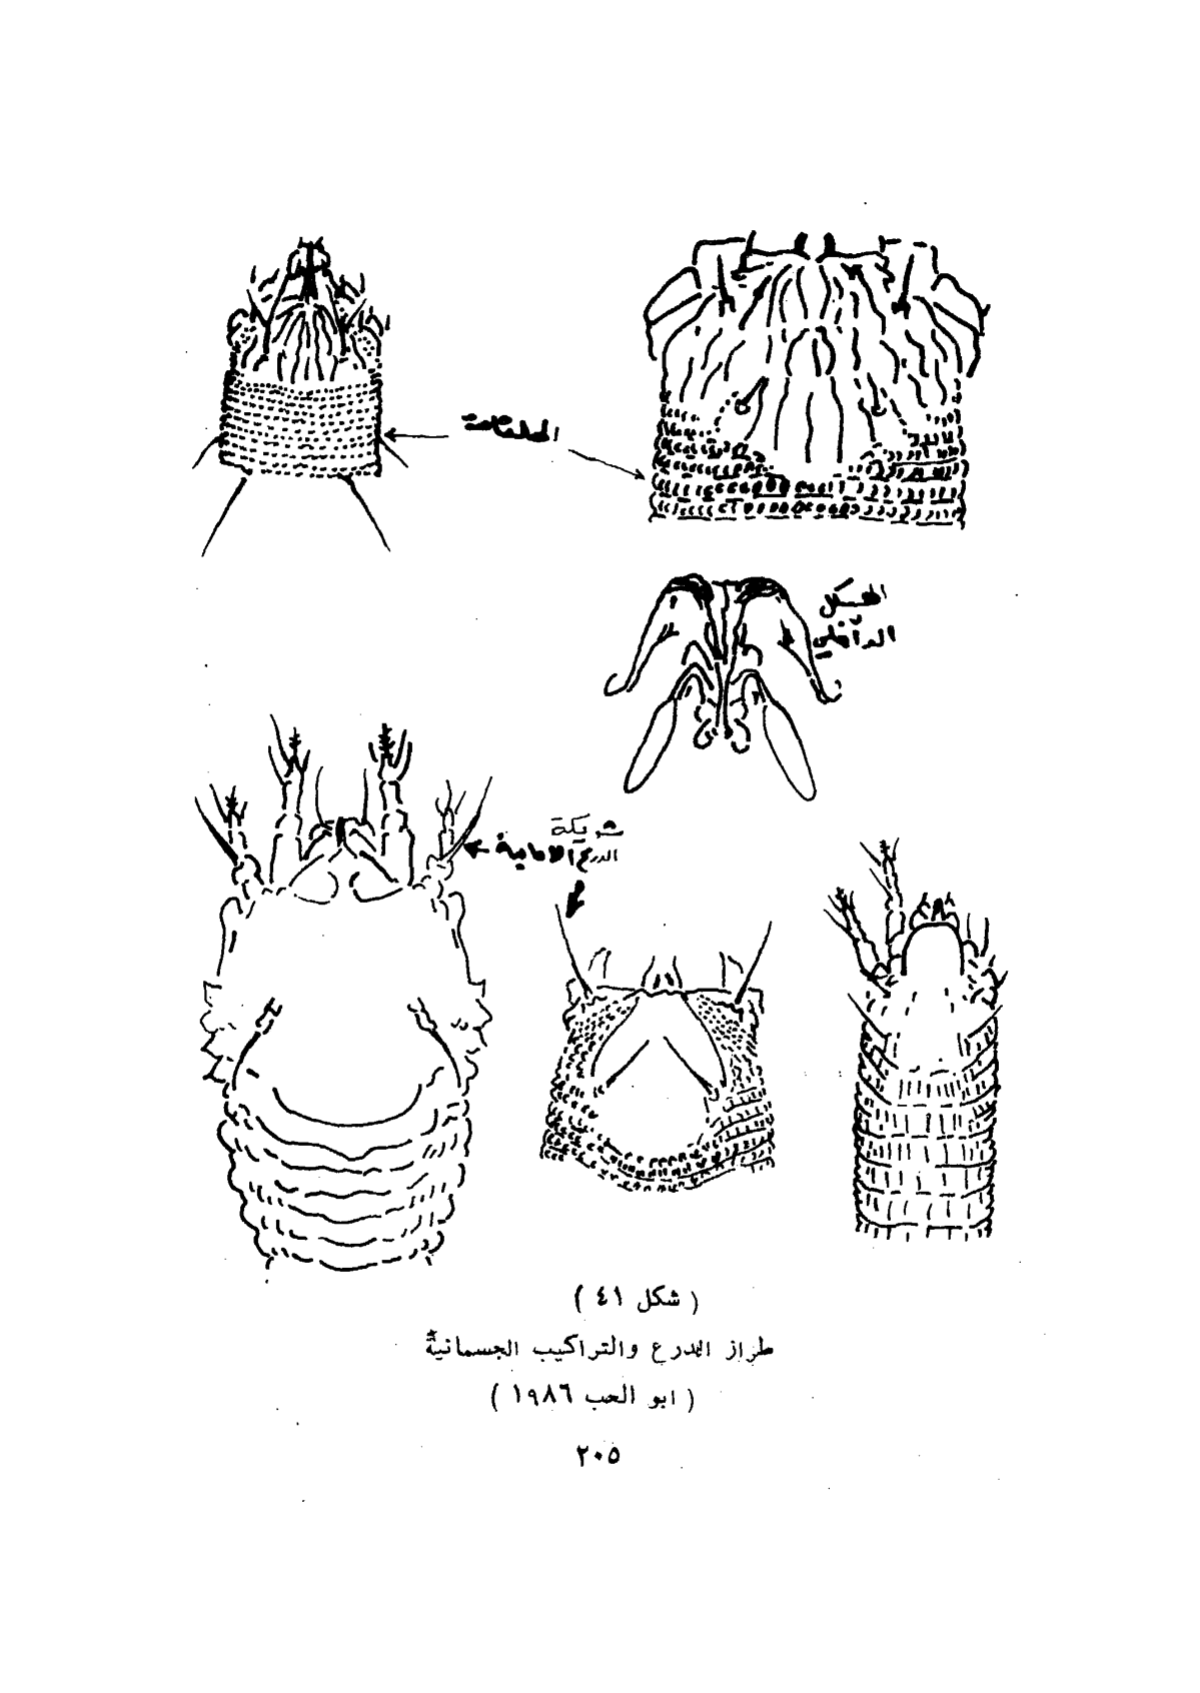 الهيكل
الداخلي
شويكة
الدرع الامامية
( شكل ٤١ )
طراز الدرع والتراكيب الجسمانية
( ابو الحب ١٩٨٦ )
٢٠٥